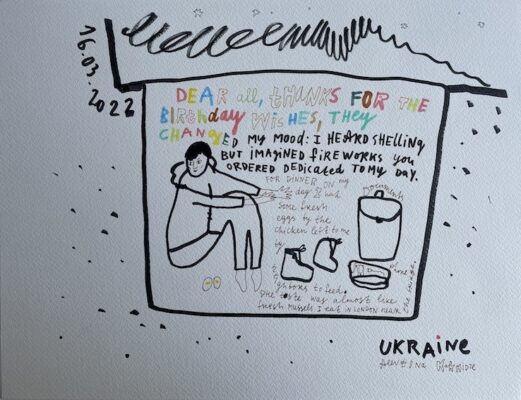 16.03.2022
DEAR all, tHANKS FOR THE
BIRthday WISHES, THEy
CHANGED MY MOOD: I HEARD SHELLING
BUT IMAGINED FIREWORKS you
ORDERED DEDICATED TO MY DAY.
FOR DINNER ON my
day I had
some fresh
eggs by the
chicken left to me
by
Documents
to feed.
The taste was almost like
fresh mussels I eat in LONDON near
UKRAiNE